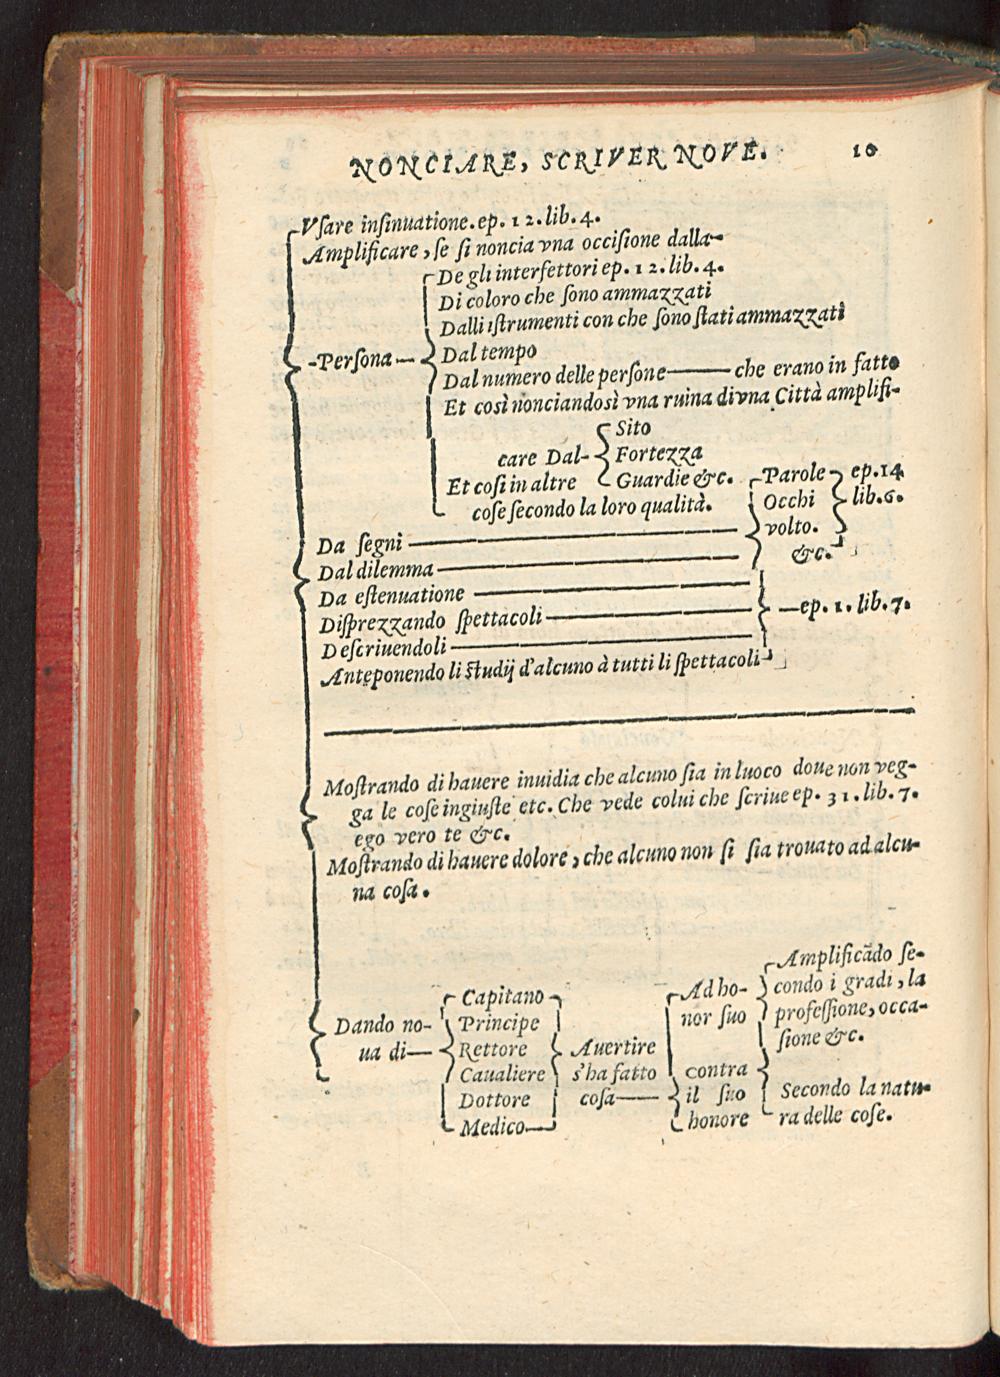 NONCIARE, SCRIVER NOVE. 10
Vſare inſinuatione. ep. 12. lib. 4.
Amplificare, ſe ſi noncia vna occiſione dalla
De gli interfettori ep. 12. lib. 4.
Di coloro che ſono ammazzati
Dalli iſtrumenti con che ſono ſtati ammazzati
-Perſona—
Dal tempo
Dal numero delle perſone—— che erano in fatto
Et così nonciandosi vna ruina divna Città amplifi-
care Dal-
Sito
Fortezza
Guardie &c.
Et coſi in altre
coſe ſecondo la loro qualità.
Parole
Occhi
volto.
&c.
ep. 14
lib. 6.
Da ſegni
Dal dilemma
Da eſtenuatione
Diſprezzando ſpettacoli
Deſcriuendoli
Anteponendo li ſtudij d'alcuno à tutti li ſpettacoli
—ep. 1. lib. 7.
Moſtrando di hauere inuidia che alcuno ſia in luoco doue non veg-
ga le coſe ingiuſte etc. Che vede colui che ſcriue ep. 31. lib. 7.
ego vero te &c.
Moſtrando di hauere dolore, che alcuno non ſi ſia trouato ad alcu-
na coſa.
Dando no-
ua di—
Capitano
Principe
Rettore
Caualiere
Dottore
Medico
Auertire
s'ha fatto
coſa——
Ad ho-
nor ſuo
contra
il ſuo
honore
Amplificãdo ſe-
condo i gradi, la
profeſſione, occa-
ſione &c.
Secondo la natu-
ra delle coſe.